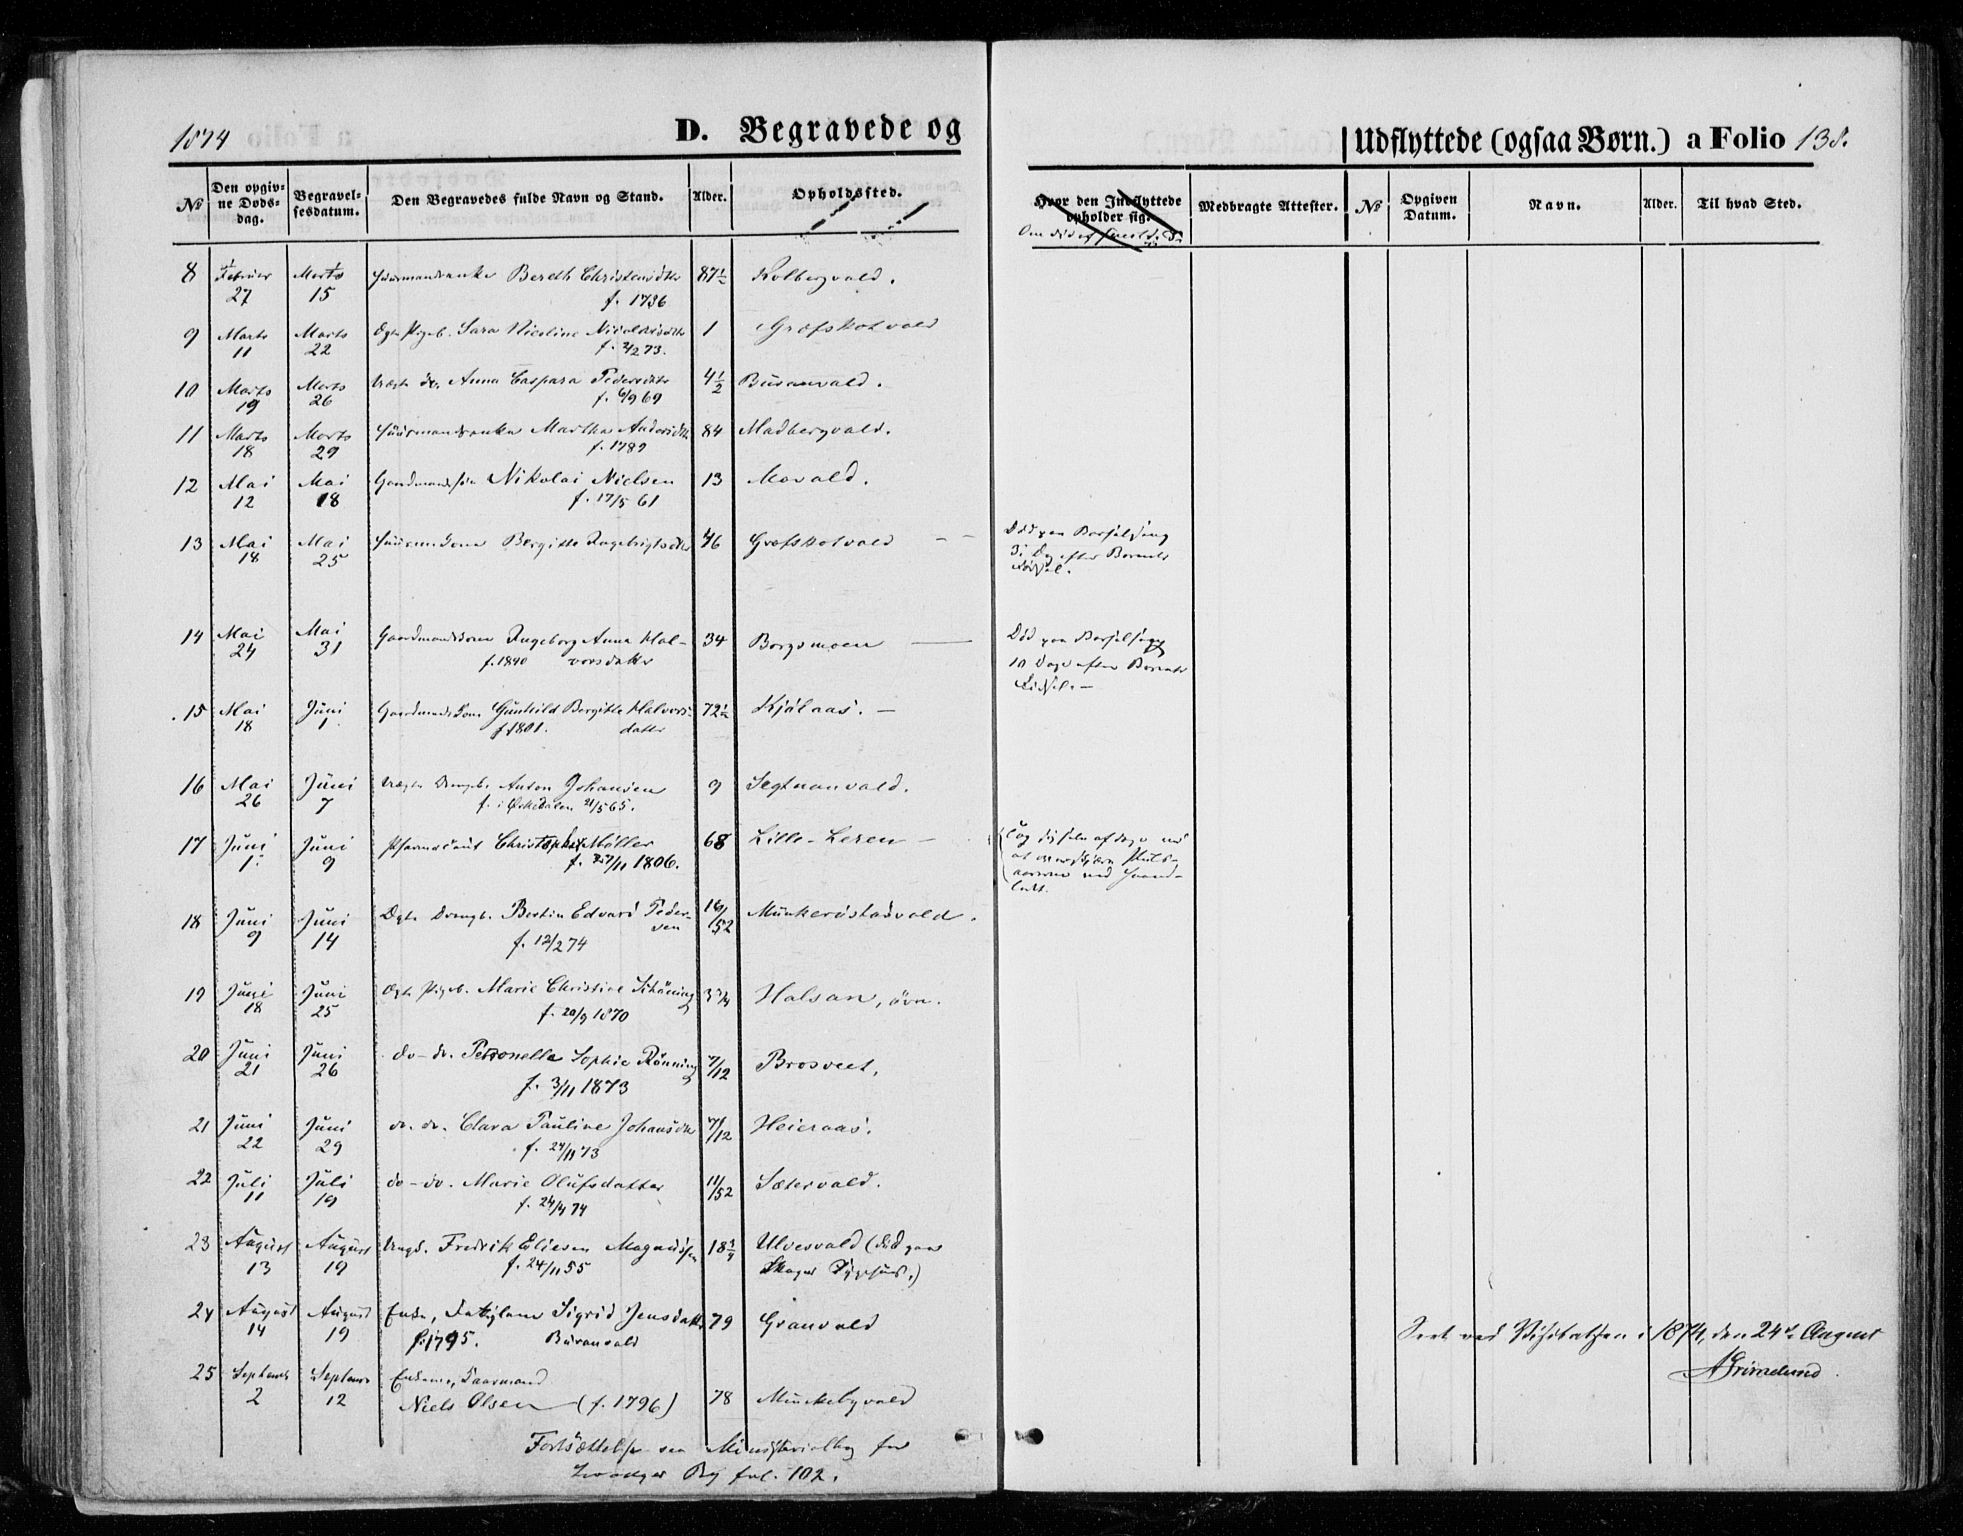 1874
D. Begravede og
Udflyttede (ogsaa Børn.) a Folio 138.
No
Den opgivne Dødsdag.
Begravelsesdatum.
Den Begravedes fulde Navn og Stand.
Alder.
Opholdssted.
Hvor den Indflyttede opholder sig.
Medbragte Attester.
No
Opgiven Datum.
Navn.
Alder.
Til hvad Sted.
8 Februar 27 Marts 15 Huusmandsenke Bereth Christensdtr 87½ Kolbergvald.
f. 1736
9 Marts 11 Marts 22 Ægte Pigeb. Sara Nicoline 1 Græfskotvald
f. 2/2 73.
10 Marts 19 Marts 26 Uægte do. Anna Caspara Pedersdtr 4½ Buranvald.
f. 6/9 69
11 Marts 18 Marts 29 Huusmandsenke Martha Andersdtr 84 Madbergvald.
f. 1789
12 Mai 12 Mai 18 Gaardmandssøn Nikolai Nielsen 13 Movald.
f. 17/5 61
13 Mai 18 Mai 25 Huusmkone Bergitte Ingebrigtsdtr 46 Græfskotvald — Død paa Barselseng
3 Dg efter Barnets
Fødsel.
14 Mai 24 Mai 31 Gaardmandskone Ingeborg Anna Hal- 34 Borgsmoen — Død paa Barselseng
f. 1840 vorsdatter 10 Dage efter Barnets
Fødsel. —
15 Mai 18 Juni 1 Gaardmandskone Gunhild Bergitte Halvors- 72½ Kjølaas. —
f. 1801. datter
16 Mai 26 Juni 7 Uægte Drengeb. Anton Johansen 9 Segtnanvald.
f. i 21/5 65.
17 Juni 1. Juni 9 Pharmaceut Christopher Møller 68 Lille-Leren — Tog sig selv af Dage ved
f. 27/11 1806. at overskjære Puls-
aarerne ved Haand-
ledet.
18 Juni 9 Juni 14 Ægte Drengb. Bertin Edvard Peder- 16/52 Munkerøstadvald.
sen
f. 12/2 74
19 Juni 18 Juni 25 Ægte Pigeb. Marie Christine Schöning 3¾ Halsan, øvre.
f. 20/9 1870
20 Juni 21 Juni 26 do - do. Petronella Sophie Rönning 7/12 Brosveet.
f. 3/11 1873
21 Juni 22 Juni 29 do. do. Clara Pauline Johansdtr 7/12 Heieraas.
f. 27/11 73
22 Juli 11 Juli 19 do - do. Marie Olufsdatter 11/52 Sætervald.
f. 24/4 74
23 August 13 August 19 Ungk. Fredrik Eliesen Magnussen 18¾ Ulvesvald (død paa
f. 24/11 55 Sygehus.)
24 August 14 August 19 Enke, Sigrid Jensdatter 79 Granvald
f. 1795. Buranvald
25 September 2 September 12 Enkem.,
Niels Olsen (f. 1796) 78 Munkebyvald
Fortsættelse se Ministerialbog for
fol. 102.
Seet ved Visitatsen i 1874, den 24de August
A Grimelund